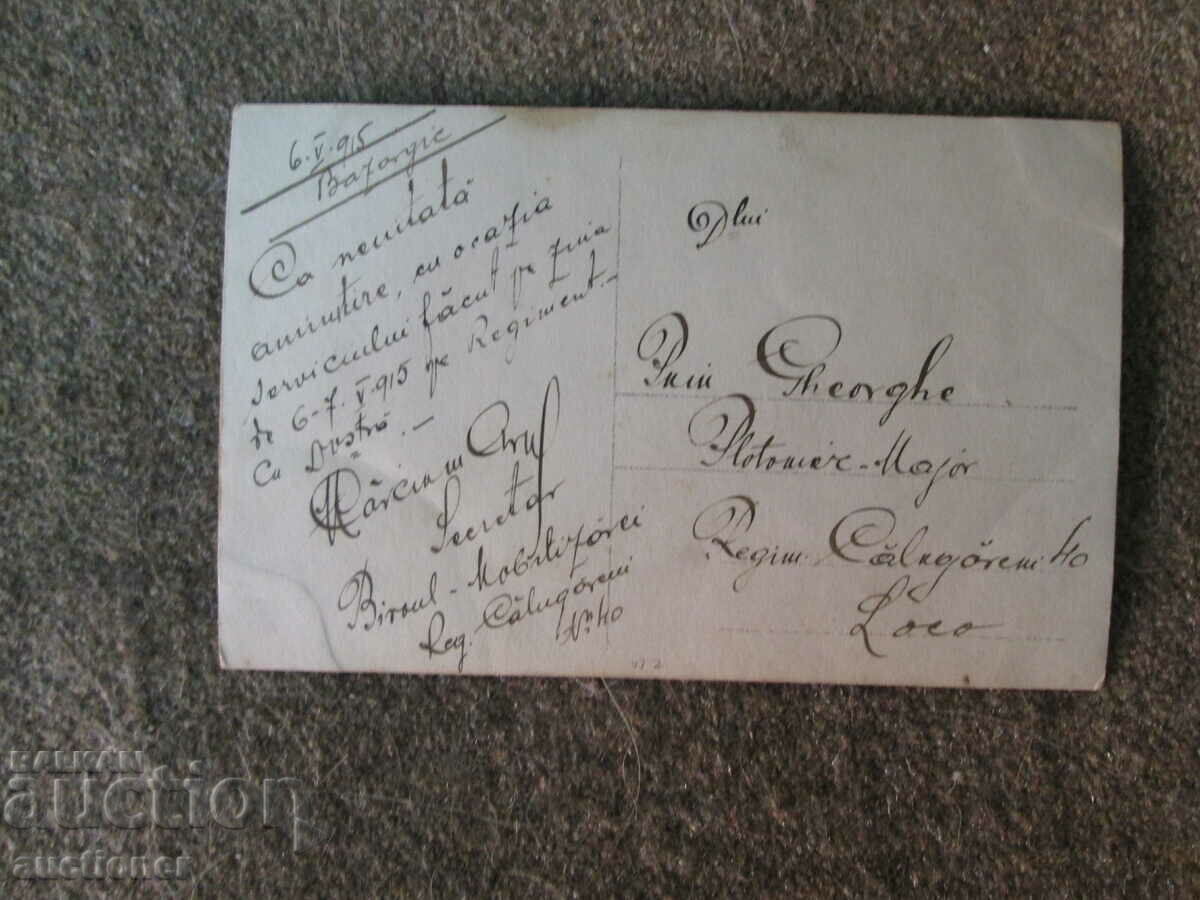 6.V.915
Bazargic
Ca neuitată
amintire, cu ocazia
serviciului făcut pe ziua
de 6-7.V.915 pe Regiment.-
Cu Dostră.-
Secretar
Biroul-Mobilizărei
Reg. Călugăreni
Nr. 40
Dlui
Gheorghe
Plotonier-Major
Regim. Călugăreni 40
Loco
BALKAN
auction
auctioner